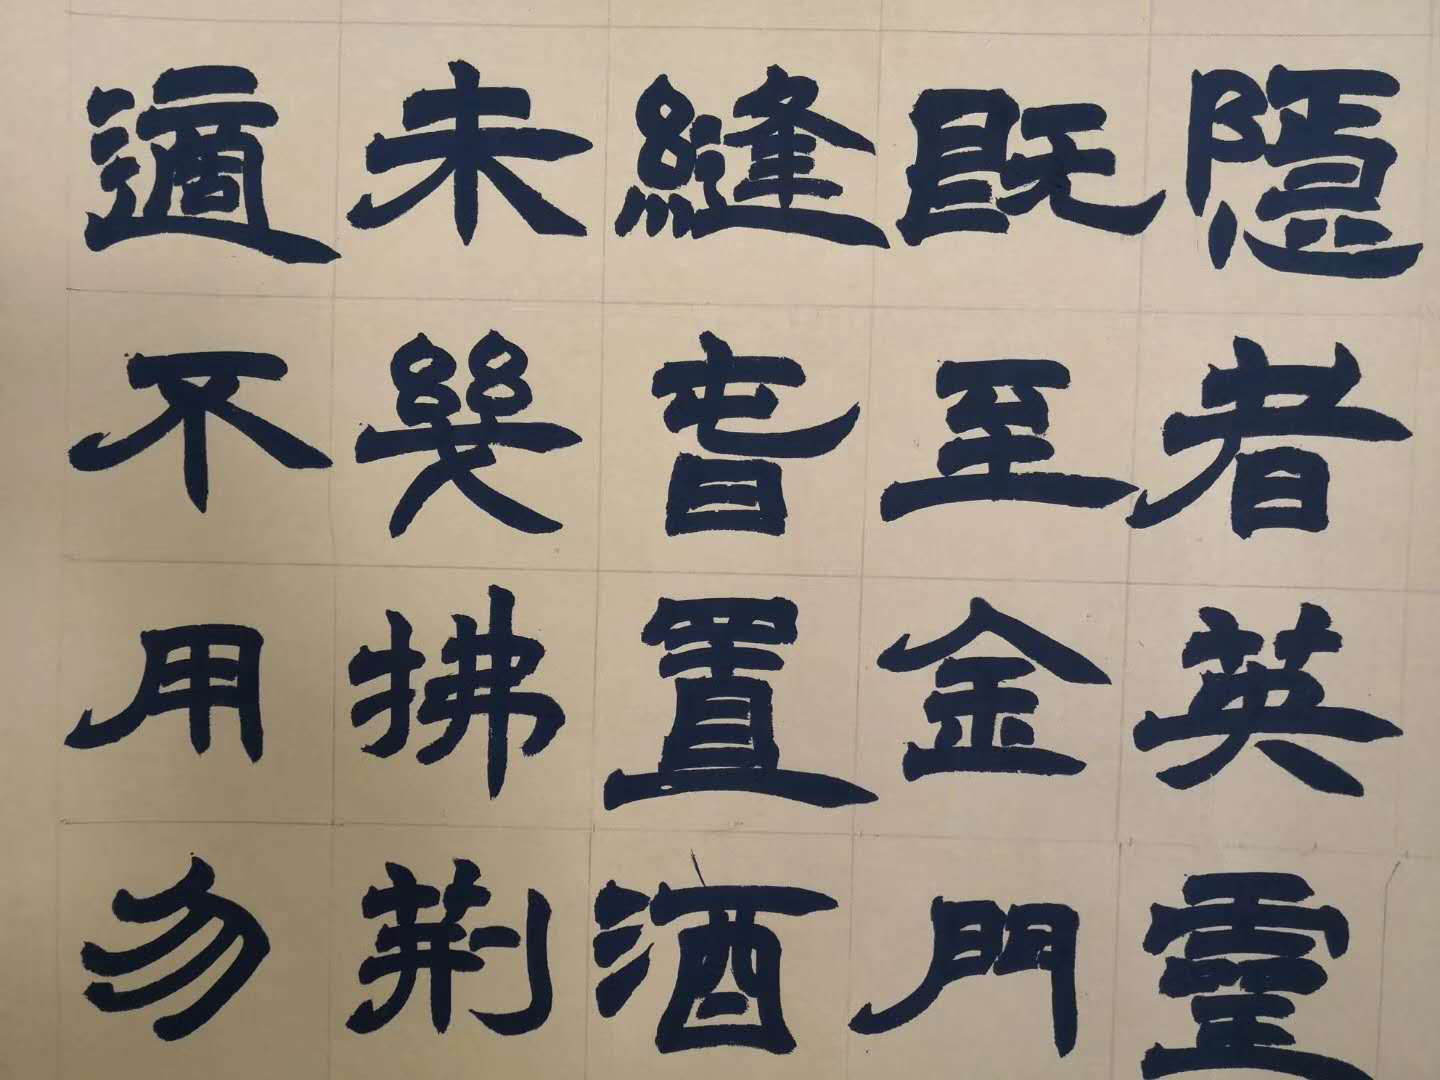 隱者英靈
既至金門
縫旾置酒
未幾拂荊
適不用勿